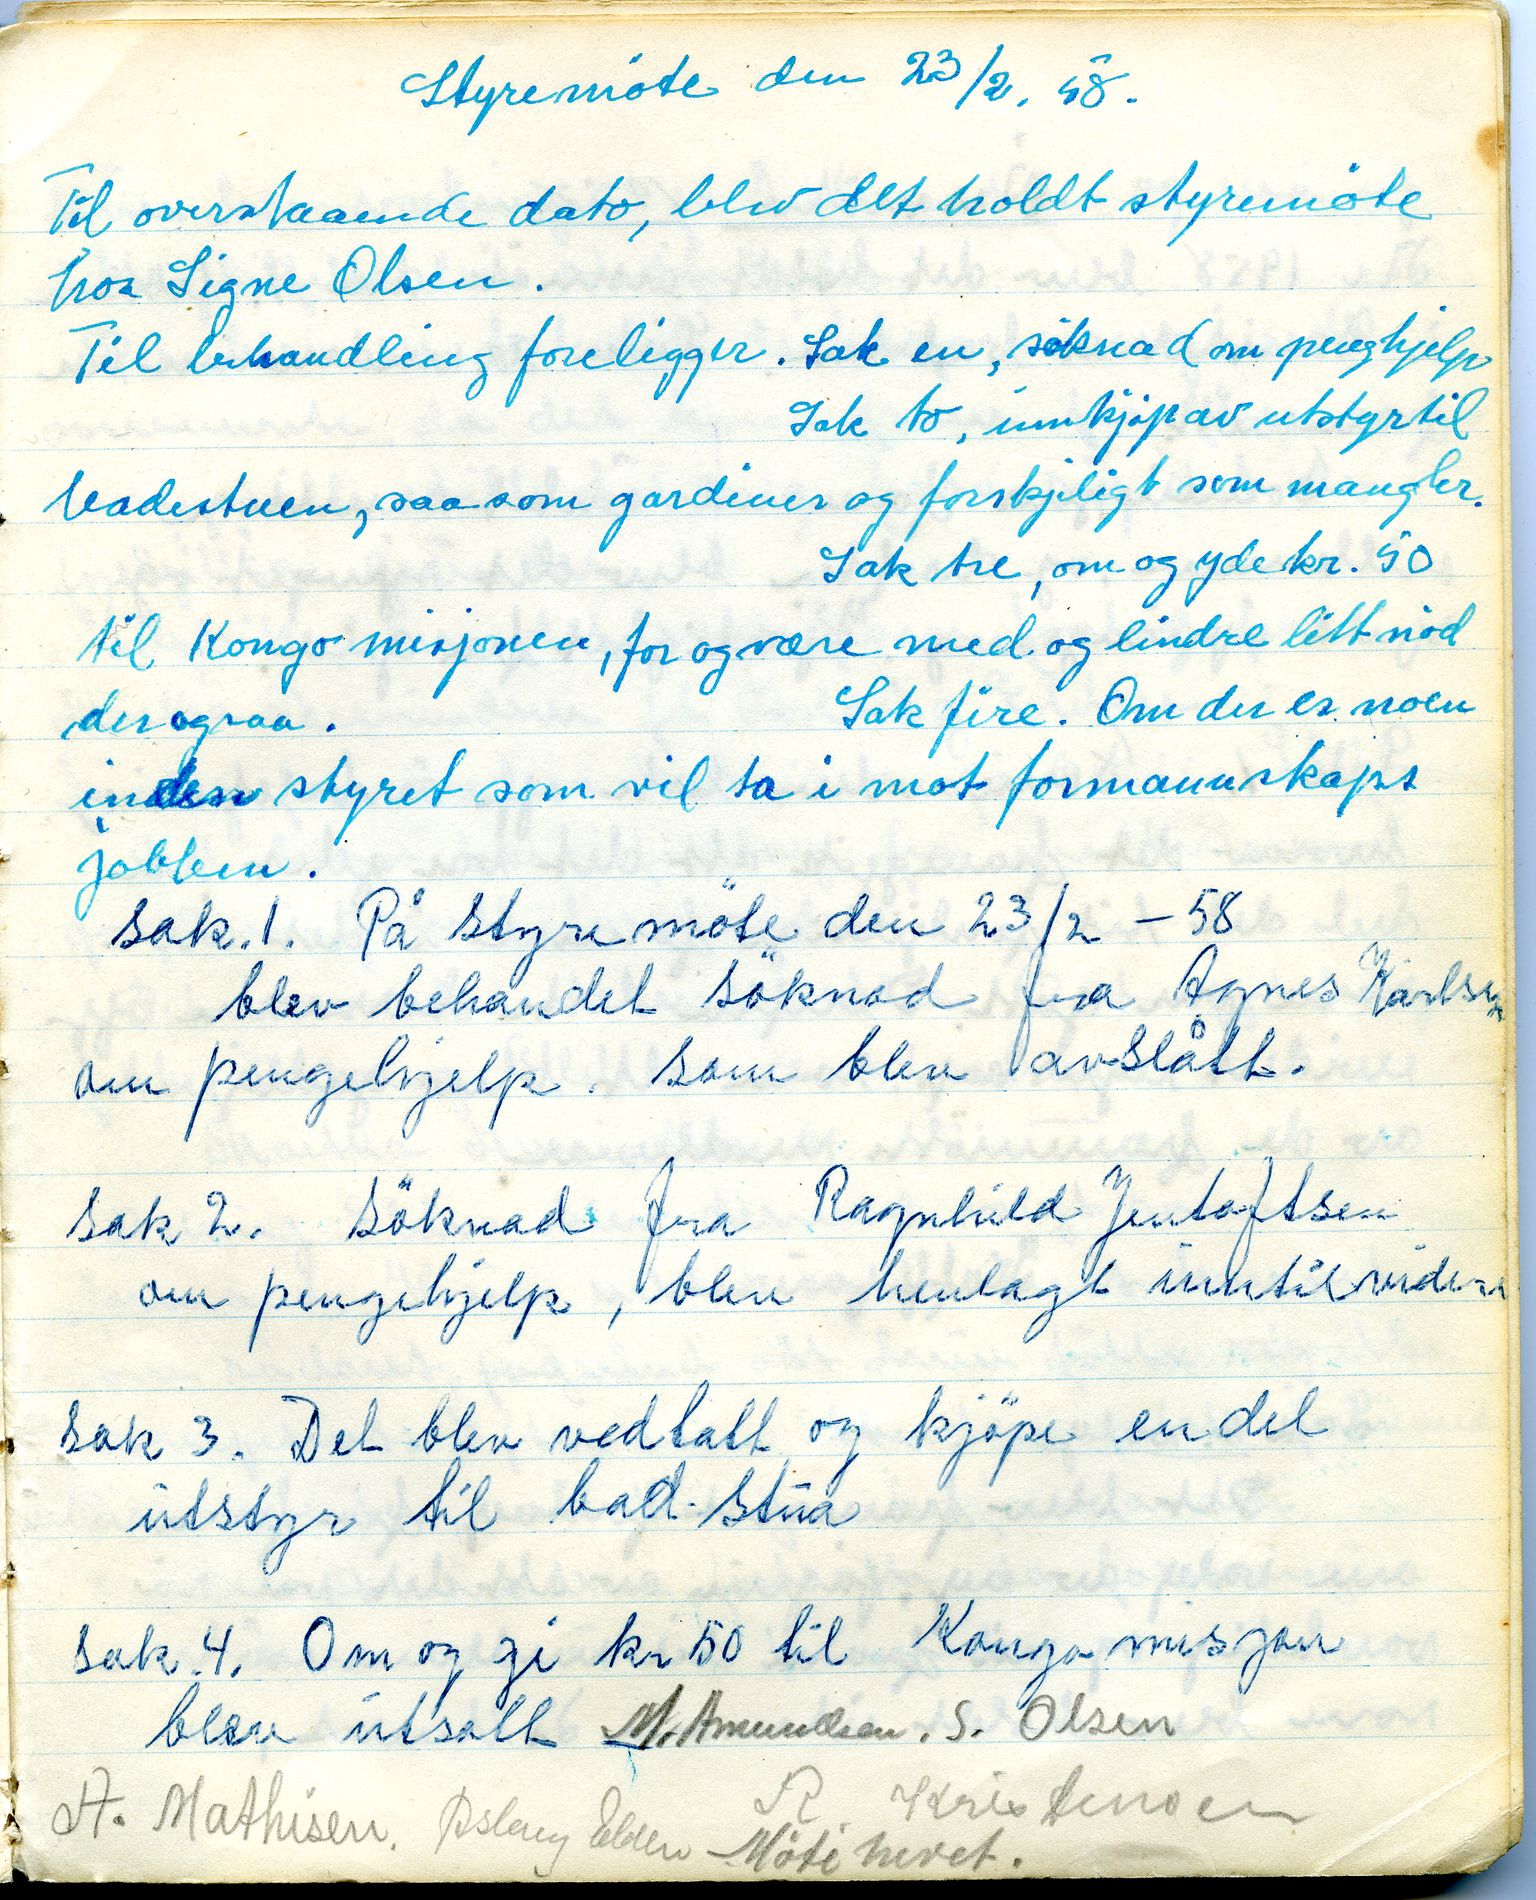 Styremöte den 23/2. 58.
Til overstaaende dato, blev det holdt styremöte
hos Signe Olsen.
Til behandling foreligger. Sak en, söknad om penghjelp
Sak to, innkjöp av utstyr til
badestuen, saa som gardiner og forskjeligt som mangler.
Sak tre, om og yde kr. 50
til Kongo misjonen, for og være med og lindre litt nöd
der ogsaa. Sak fire. Om der er noen
inden styret som vil ta i mot formannskaps
jobben.
Sak. 1. På Styremöte den 23/2 – 58
blev behandet Söknad fra Agnes Karlsen
om pengehjelp. Som blev avslått.
Sak 2. Söknad fra Ragnhild Jentoftsen
om pengehjelp, blev henlagt inntil videre
Sak 3. Det blev vedtatt og kjöpe en del
utstyr til bad-stua
Sak. 4. Om og gi kr 50 til Kongo misjon
blev utsatt M. Amundsen. S. Olsen
A. Mathisen. Aslaug Elden R Kristensen
Möte hevet.